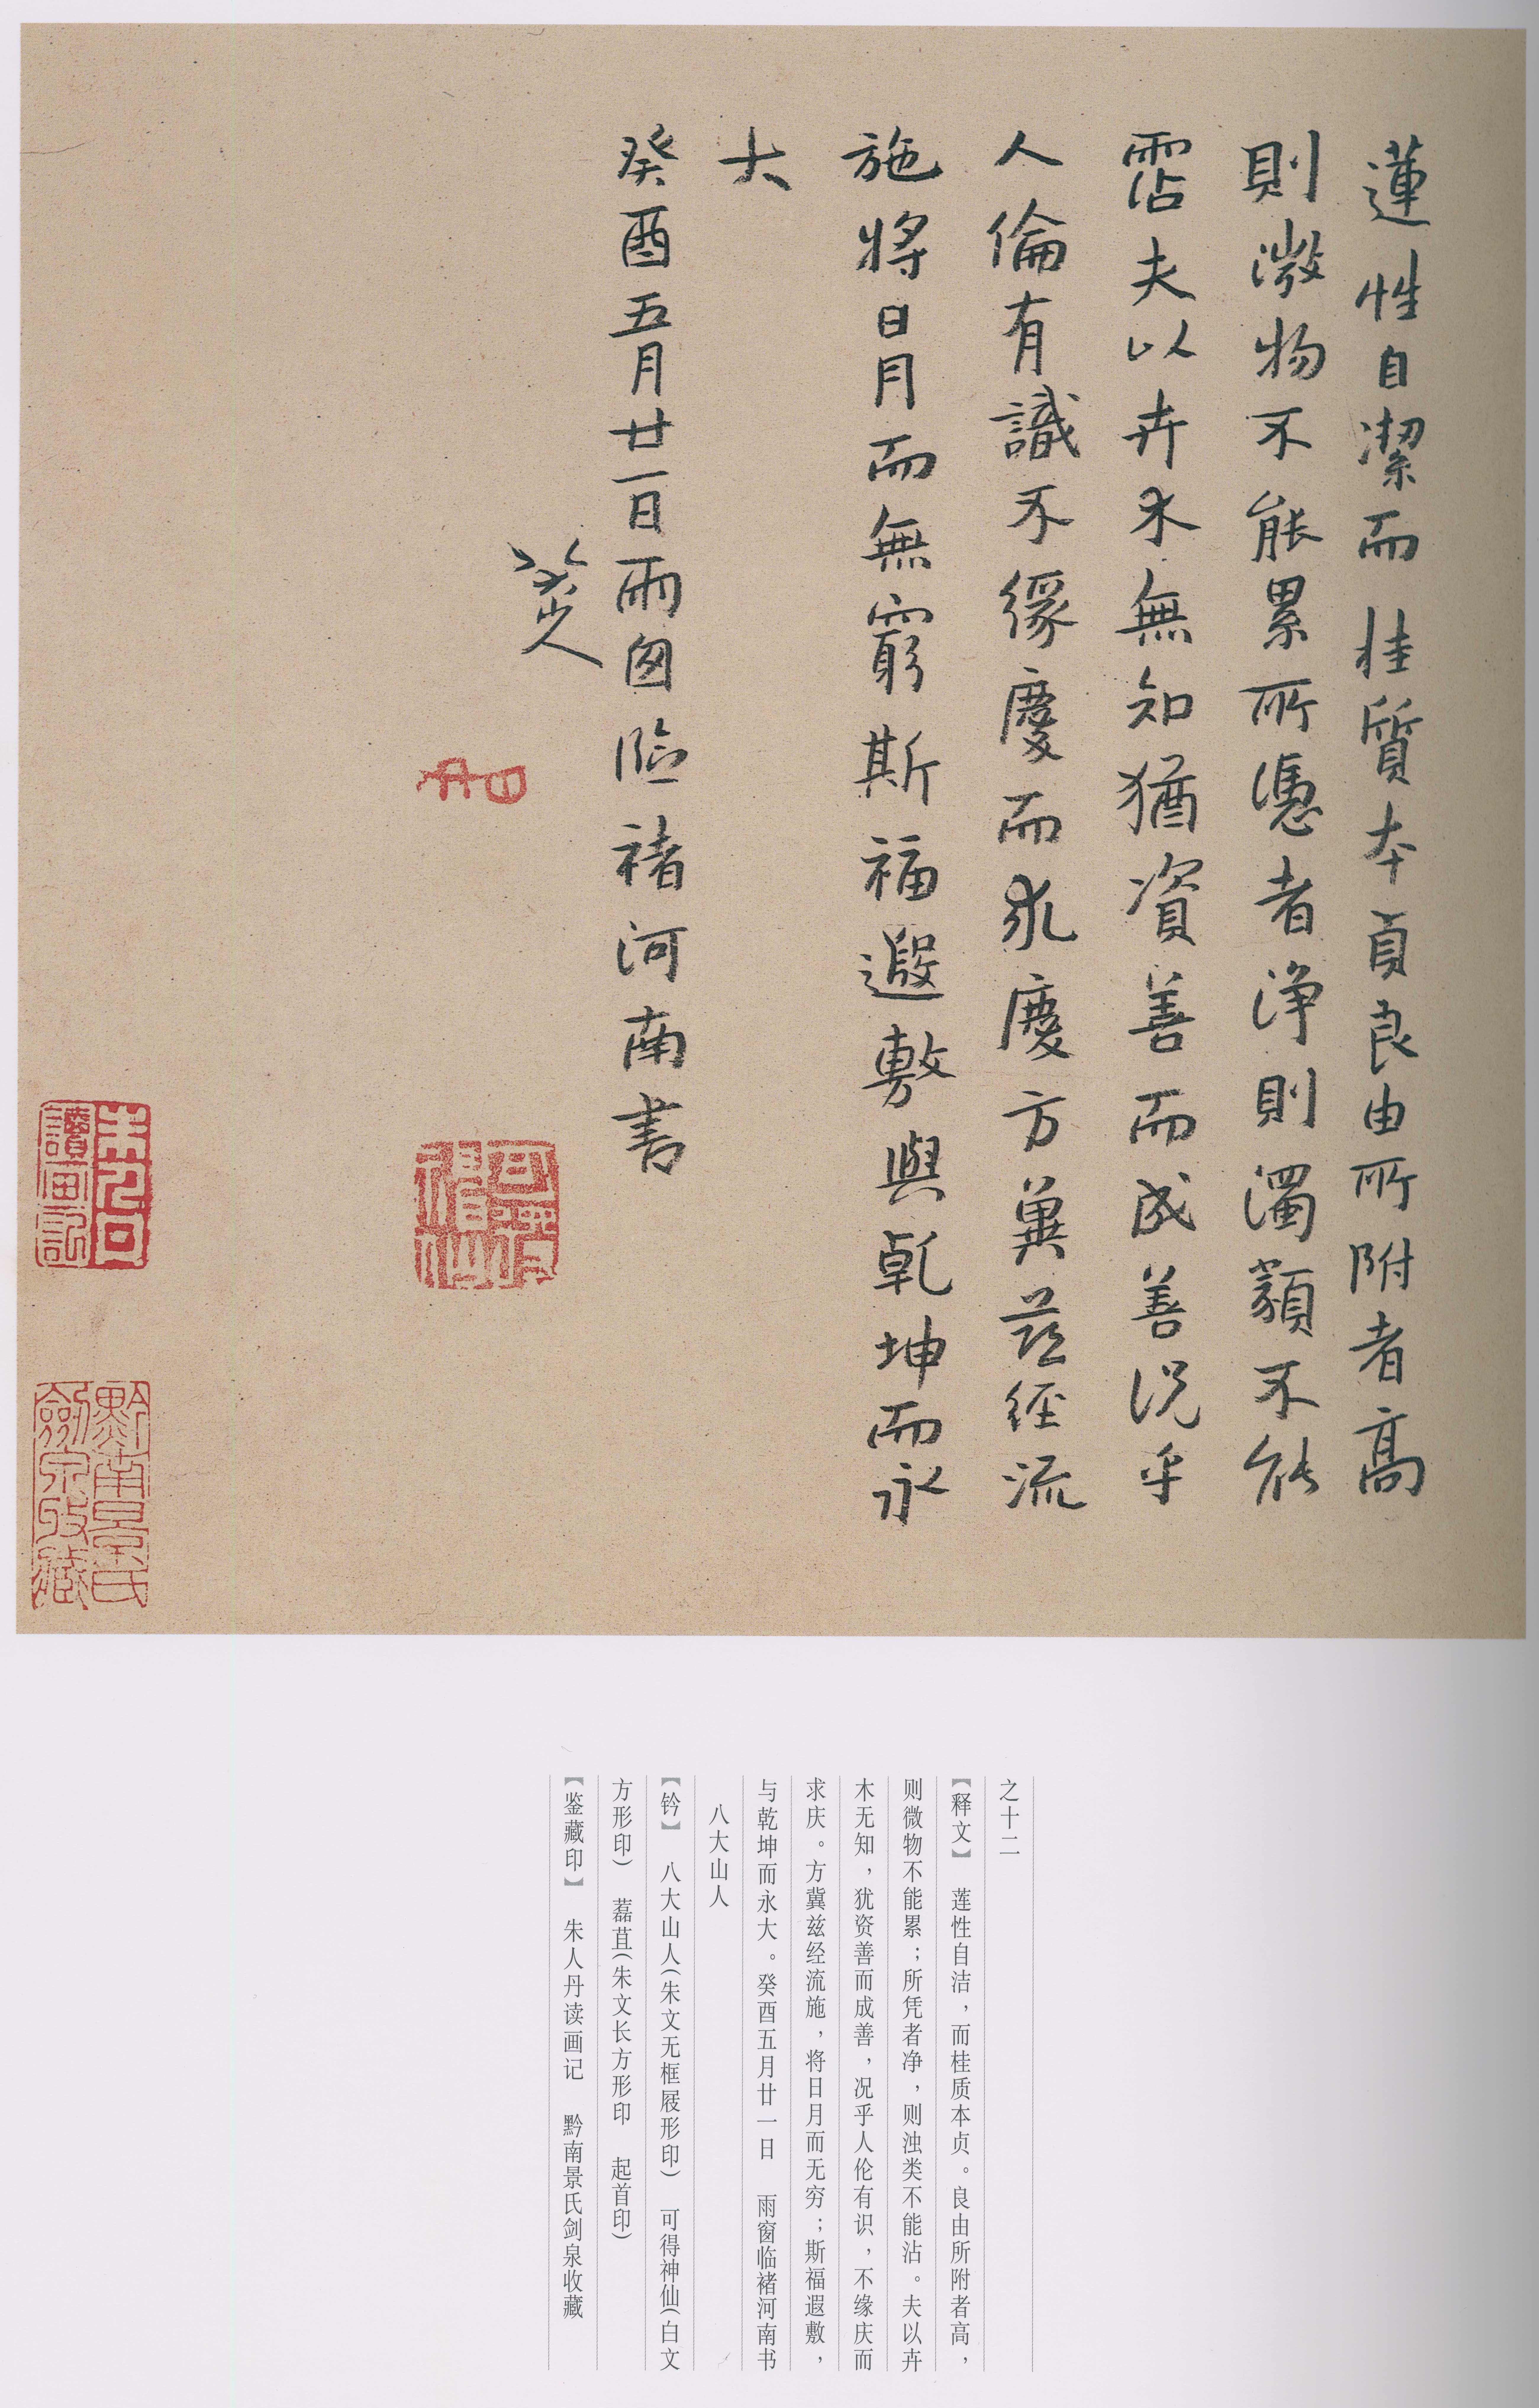 蓮性自潔而桂質本貞良由所附者高
則微物不能累所憑者淨則濁類不能
霑夫以卉木無知猶資善而成善況乎
人倫有識不緣慶而求慶方冀茲經流
施將日月而無窮斯福遐敷與乾坤而永
大
癸酉五月廿一日雨囪臨褚河南書
八大山人
可得神仙
讀画記
黔南景氏
劍泉收藏
之十二
【释文】 莲性自洁，而桂质本贞。良由所附者高，
则微物不能累；所凭者净，则浊类不能沾。夫以卉
木无知，犹资善而成善，况乎人伦有识，不缘庆而
求庆。方冀兹经流施，将日月而无穷；斯福遐敷，
与乾坤而永大。癸酉五月廿一日 雨窗临褚河南书
八大山人
【钤】 八大山人（朱文无框屐形印） 可得神仙（白文
方形印） 藟苴（朱文长方形印 起首印）
【鉴藏印】 朱人丹读画记 黔南景氏剑泉收藏